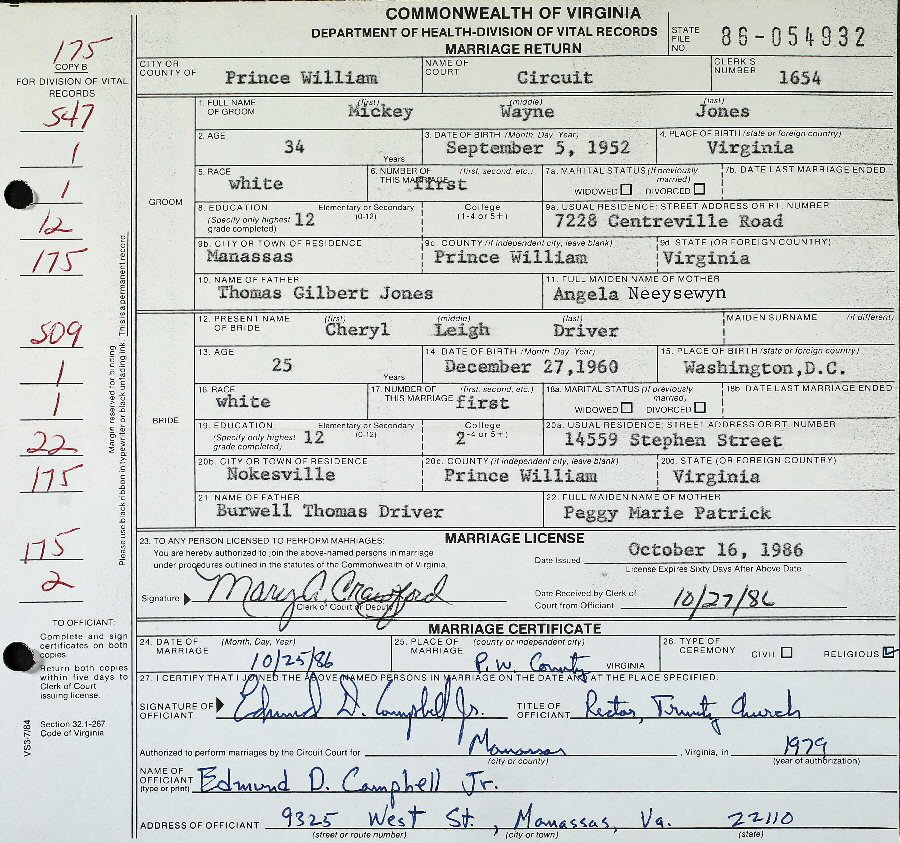 COMMONWEALTH OF VIRGINIA
DEPARTMENT OF HEALTH-DIVISION OF VITAL RECORDS
MARRIAGE RETURN
STATE FILE NO. 86-054932
175
COPY B
FOR DIVISION OF VITAL RECORDS
547
1
1
12
175
509
1
1
22
175
175
2
Margin reserved for binding
Please use black ribbon in typewriter or black unfading ink. This is a permanent record.
TO OFFICIAL:
Complete and sign
certificates on both
copies.
Return both copies
within five days to
Clerk of Court
issuing license.
Section 32.1-267
Code of Virginia
VS3-7/84
CITY OR COUNTY OF Prince William NAME OF COURT Circuit CLERK'S NUMBER 1654
GROOM
1. FULL NAME OF GROOM (first) Mickey (middle) Wayne (last) Jones
2. AGE 34 Years 3. DATE OF BIRTH (Month, Day, Year) September 5, 1952 4. PLACE OF BIRTH (state or foreign country) Virginia
5. RACE white 6. NUMBER OF THIS MARRIAGE (first, second, etc.) first 7a. MARITAL STATUS (If previously married) WIDOWED DIVORCED 7b. DATE LAST MARRIAGE ENDED
8. EDUCATION (Specify only highest grade completed) Elementary or Secondary (0-12) 12 College (1-4 or 5+) 9a. USUAL RESIDENCE: STREET ADDRESS OR RT. NUMBER 7228 Centreville Road
9b. CITY OR TOWN OF RESIDENCE Manassas 9c. COUNTY (If independent city, leave blank) Prince William 9d. STATE (OR FOREIGN COUNTRY) Virginia
10. NAME OF FATHER Thomas Gilbert Jones 11. FULL MAIDEN NAME OF MOTHER Angela Neeysewyn
BRIDE
12. PRESENT NAME OF BRIDE (first) Cheryl (middle) Leigh (last) Driver MAIDEN SURNAME (if different)
13. AGE 25 Years 14. DATE OF BIRTH (Month, Day, Year) December 27,1960 15. PLACE OF BIRTH (state or foreign country) Washington,D.C.
16. RACE white 17. NUMBER OF THIS MARRIAGE (first, second, etc.) first 18a. MARITAL STATUS (If previously married) WIDOWED DIVORCED 18b. DATE LAST MARRIAGE ENDED
19. EDUCATION (Specify only highest grade completed) Elementary or Secondary (0-12) 12 College 2 -4 or 5+) 20a. USUAL RESIDENCE: STREET ADDRESS OR RT. NUMBER 14559 Stephen Street
20b. CITY OR TOWN OF RESIDENCE Nokesville 20c. COUNTY (If independent city, leave blank) Prince William 20d. STATE (OR FOREIGN COUNTRY) Virginia
21. NAME OF FATHER Burwell Thomas Driver 22. FULL MAIDEN NAME OF MOTHER Peggy Marie Patrick
23. TO ANY PERSON LICENSED TO PERFORM MARRIAGES: MARRIAGE LICENSE
You are hereby authorized to join the above-named persons in marriage
under procedures outlined in the statutes of the Commonwealth of Virginia.
Date Issued October 16, 1986
License Expires Sixty Days After Above Date
Signature Mary A. Crawford
Clerk of Court or Deputy
Date Received by Clerk of Court from Official 10/27/86
MARRIAGE CERTIFICATE
24. DATE OF MARRIAGE (Month, Day, Year) 10/25/86 25. PLACE OF MARRIAGE (county or independent city) P.W. County VIRGINIA 26. TYPE OF CEREMONY CIVIL RELIGIOUS
27. I CERTIFY THAT I JOINED THE ABOVE NAMED PERSONS IN MARRIAGE ON THE DATE AND AT THE PLACE SPECIFIED.
SIGNATURE OF OFFICIANT Edmund D. Campbell Jr. TITLE OF OFFICIANT Rector, Trinity Church
Authorized to perform marriages by the Circuit Court for Manassas, Virginia, in 1979
(city or county) (year of authorization)
NAME OF OFFICIANT (type or print) Edmund D. Campbell Jr.
ADDRESS OF OFFICIANT 9325 West St., Manassas, Va. 22110
(street or route number) (city or town) (state)